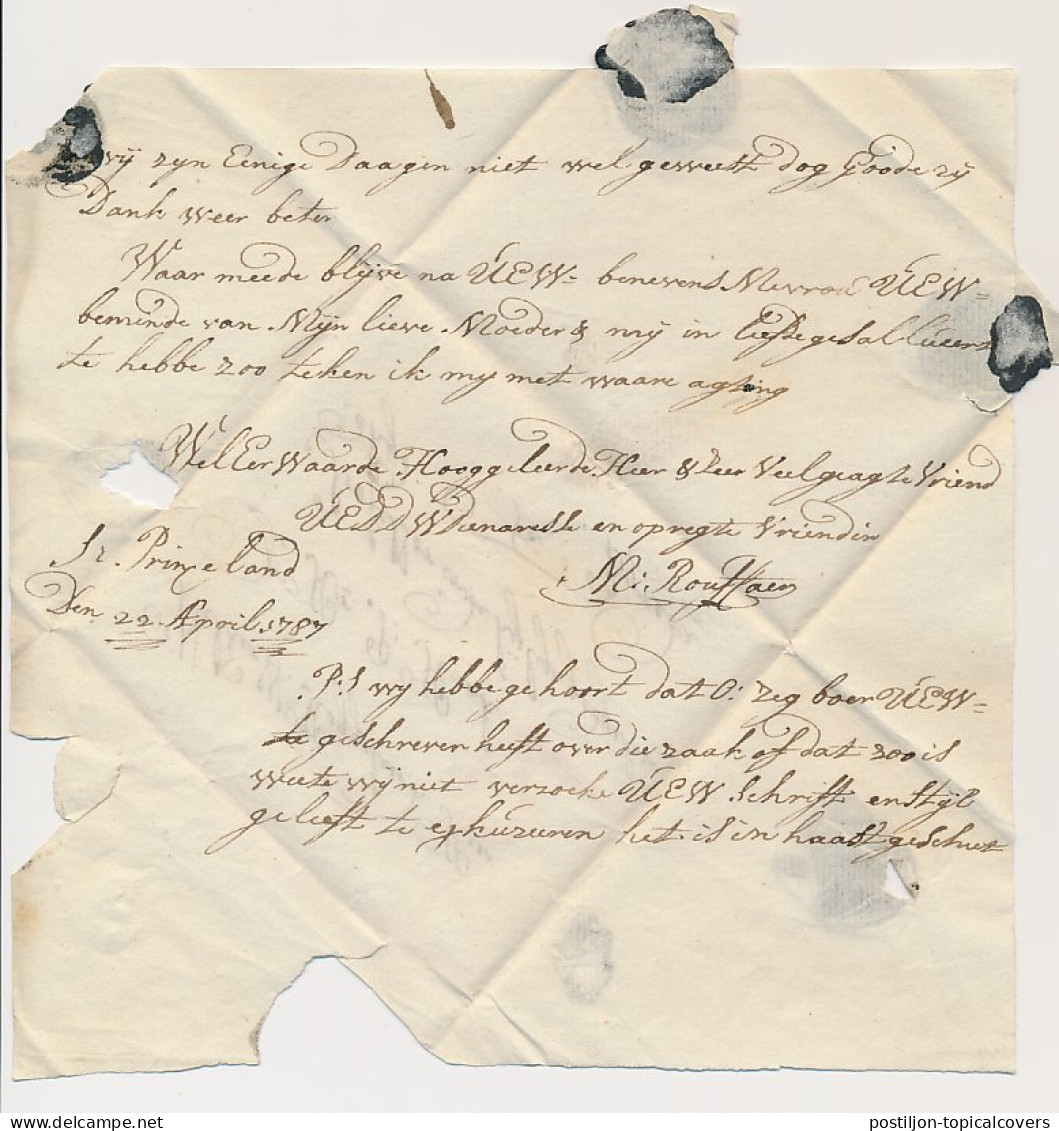 wij zijn Eenige Daagen niet wel geweest dog Goode zij
Dank weer beter
Waar meede blijve na UEW= benevens Mevrou UEW=
beminde van Mijn lieve Moeder & mij in liefde gesallueert
te hebbe zoo teken ik mij met waare agting
WelEerwaarde Hooggeleerde Heer & zeer Veelgeagte Vriend
UEDDW Dienaresse en opregte Vriendin
M: Rouffaer
St. Prinseland
Den 22 April 1787
P:S wij hebbe gehoort dat O: Zegboer UEW=
geschreven heeft over die zaak of dat zoo is
weete wij niet verzoeke UEW schrift en stijl
gelieft te exkuzeren het is in haast geschiet
postiljon-topicalcovers